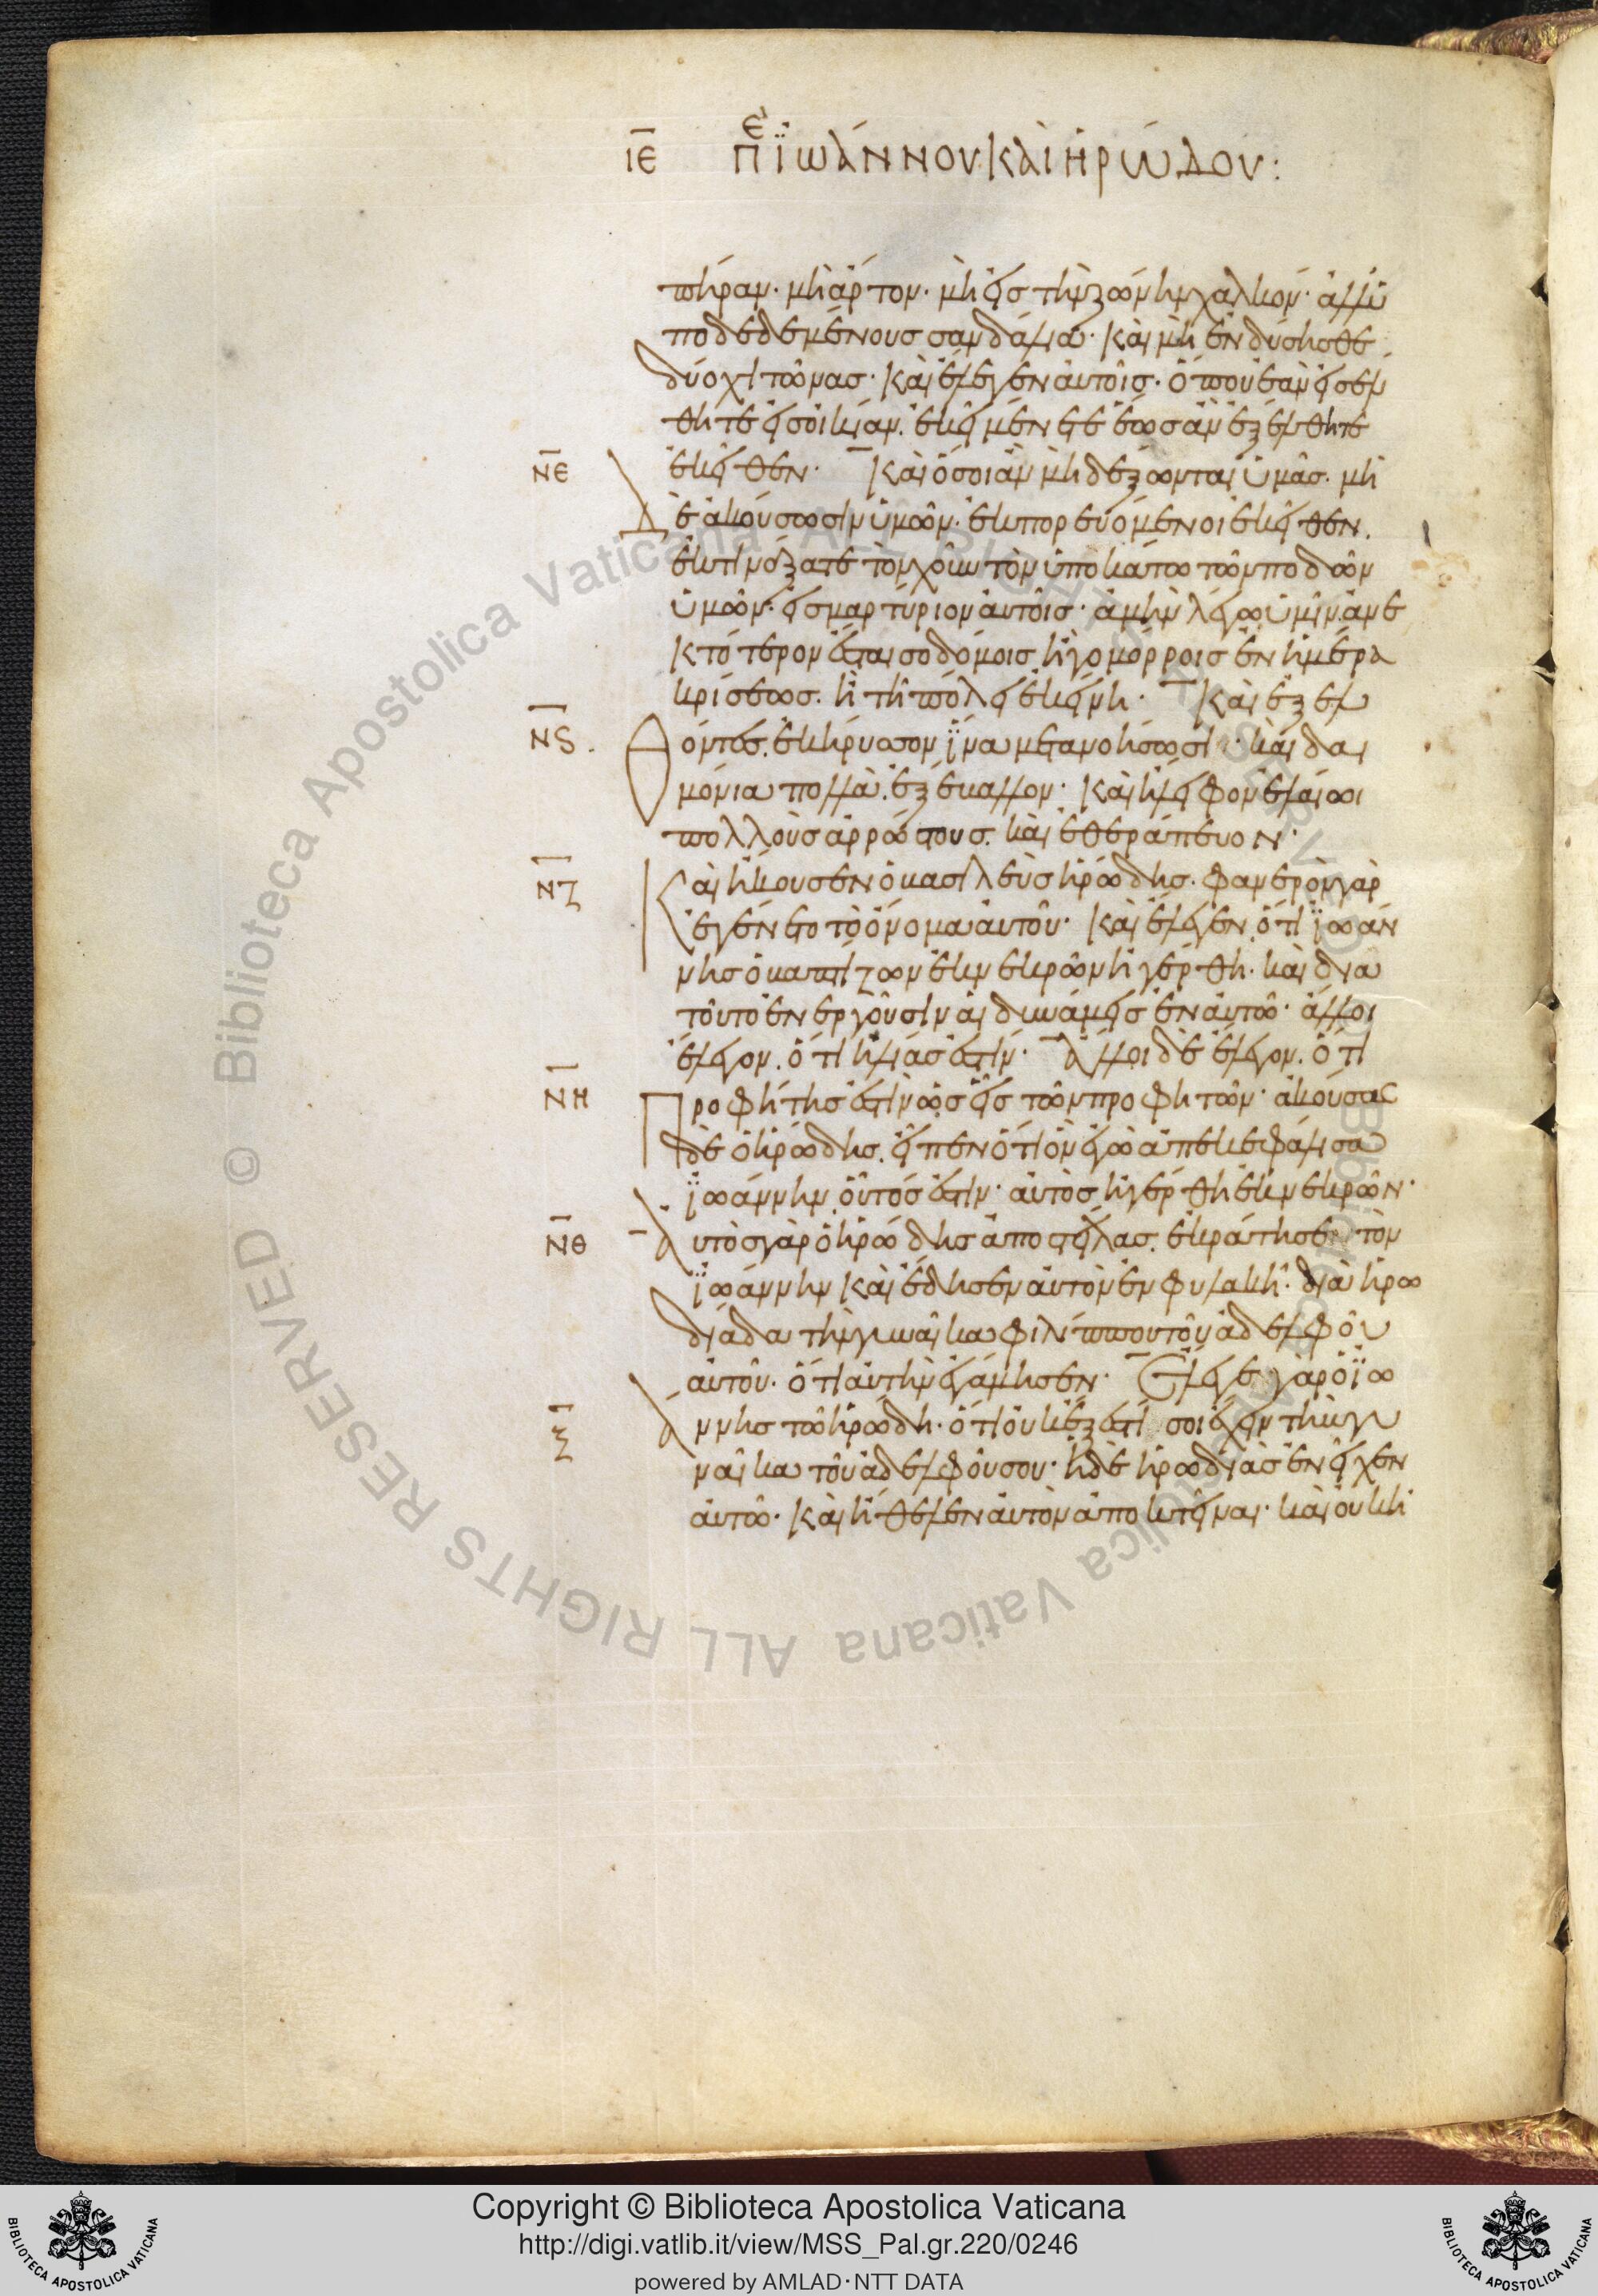 ιε ἐπϊωάννου καὶ ἡρώδου:
πήραν· μὴ ἄρτον· μὴ εἰς τὴν ζώνην χαλκόν· ἀλλ' ὑ
ποδεδεμένους σανδάλια· καὶ μὴ ἐνδύσησθε
δύο χιτῶνας· καὶ ἔλεγεν αὐτοῖς· ὅπου ἐὰν εἰσέλ
θητε εἰς οἰκίαν. ἐκεῖ μένετε ἕως ἂν ἐξέλθητε
νε ἐκεῖθεν· καὶ ὅσοι ἂν μὴ δέξωνται ὑμᾶς. μὴ
δὲ ἀκούσωσιν ὑμῶν· ἐκπορευόμενοι ἐκεῖθεν.
ἐκτινάξατε τὸν χοῦν τὸν ὑποκάτω τῶν ποδῶν
ὑμῶν· εἰς μαρτύριον αὐτοῖς· ἀμὴν λέγω ὑμῖν. ἀνε
κτότερον ἔσται σοδόμοις ἢ γομόρροις ἐν ἡμέρα
κρίσεως. ἢ τῆ πόλει ἐκείνη· καὶ ἐξελ
νϛ. θόντες. ἐκήρυσσον ἵνα μετανοήσωσι· καὶ δαι
μόνια πολλὰ. ἐξέβαλλον· καὶ ἤλειφον ἐλαίωι
πολλοὺς ἀρρώστους. καὶ ἐθεράπευον·
νζ Καὶ ἤκουσεν ὁ βασιλεὺς ἡρώδης. φανερὸν γὰρ
ἐγένετο τὸ ὄνομα αὐτοῦ· καὶ ἔλεγεν. ὅτι ϊωάν
νης ὁ βαπτίζων ἐκ νεκρῶν ἠγέρθη. καὶ δια
τοῦτο ἐνεργοῦσιν αἱ δυνάμεις ἐν αὐτῶ· ἄλλοι
ἔλεγον. ὅτι ἠλίας ἐστίν· ἄλλοι δὲ ἔλεγον. ὅτι
νη Προφήτης ἐστὶν ὡς εἷς τῶν προφητῶν· ἀκούσας
δὲ ὁ ἡρώδης. εἶπεν ὅτι ὃν ἐγὼ ἀπεκεφάλισα
ϊωάννην. οὗτός ἐστιν· αὐτὸς ἠγέρθη ἐκ νεκρῶν·
νθ Αὐτὸς γὰρ ὁ ἡρώδης ἀποστείλας. ἐκράτησεν τὸν
ϊωάννην καὶ ἔδησεν αὐτὸν ἐν φυλακῆ· διὰ ἡρω
διάδα τὴν γυναῖκα φιλίππου τοῦ ἀδελφοῦ
αὐτοῦ· ὅτι αὐτὴν ἐγάμησεν· ἔλεγε γὰρ ὁ ϊω
ξ άννης τῶ ἡρώδη· ὅτι οὐκ ἔξεστί σοι ἔχειν τὴν γυ
ναῖκα τοῦ ἀδελφοῦ σου· ἡ δὲ ἡρωδιὰς ἐνεῖχεν
αὐτῶ· καὶ ἤθελεν αὐτὸν ἀποκτεῖναι· καὶ οὐκ ἠ
© Biblioteca Apostolica Vaticana ALL RIGHTS RESERVED
© Biblioteca Apostolica Vaticana ALL RIGHTS RESERVED
BIBLIOTECA APOSTOLICA VATICANA
Copyright © Biblioteca Apostolica Vaticana
http://digi.vatlib.it/view/MSS_Pal.gr.220/0246
powered by AMLAD·NTT DATA
BIBLIOTECA APOSTOLICA VATICANA